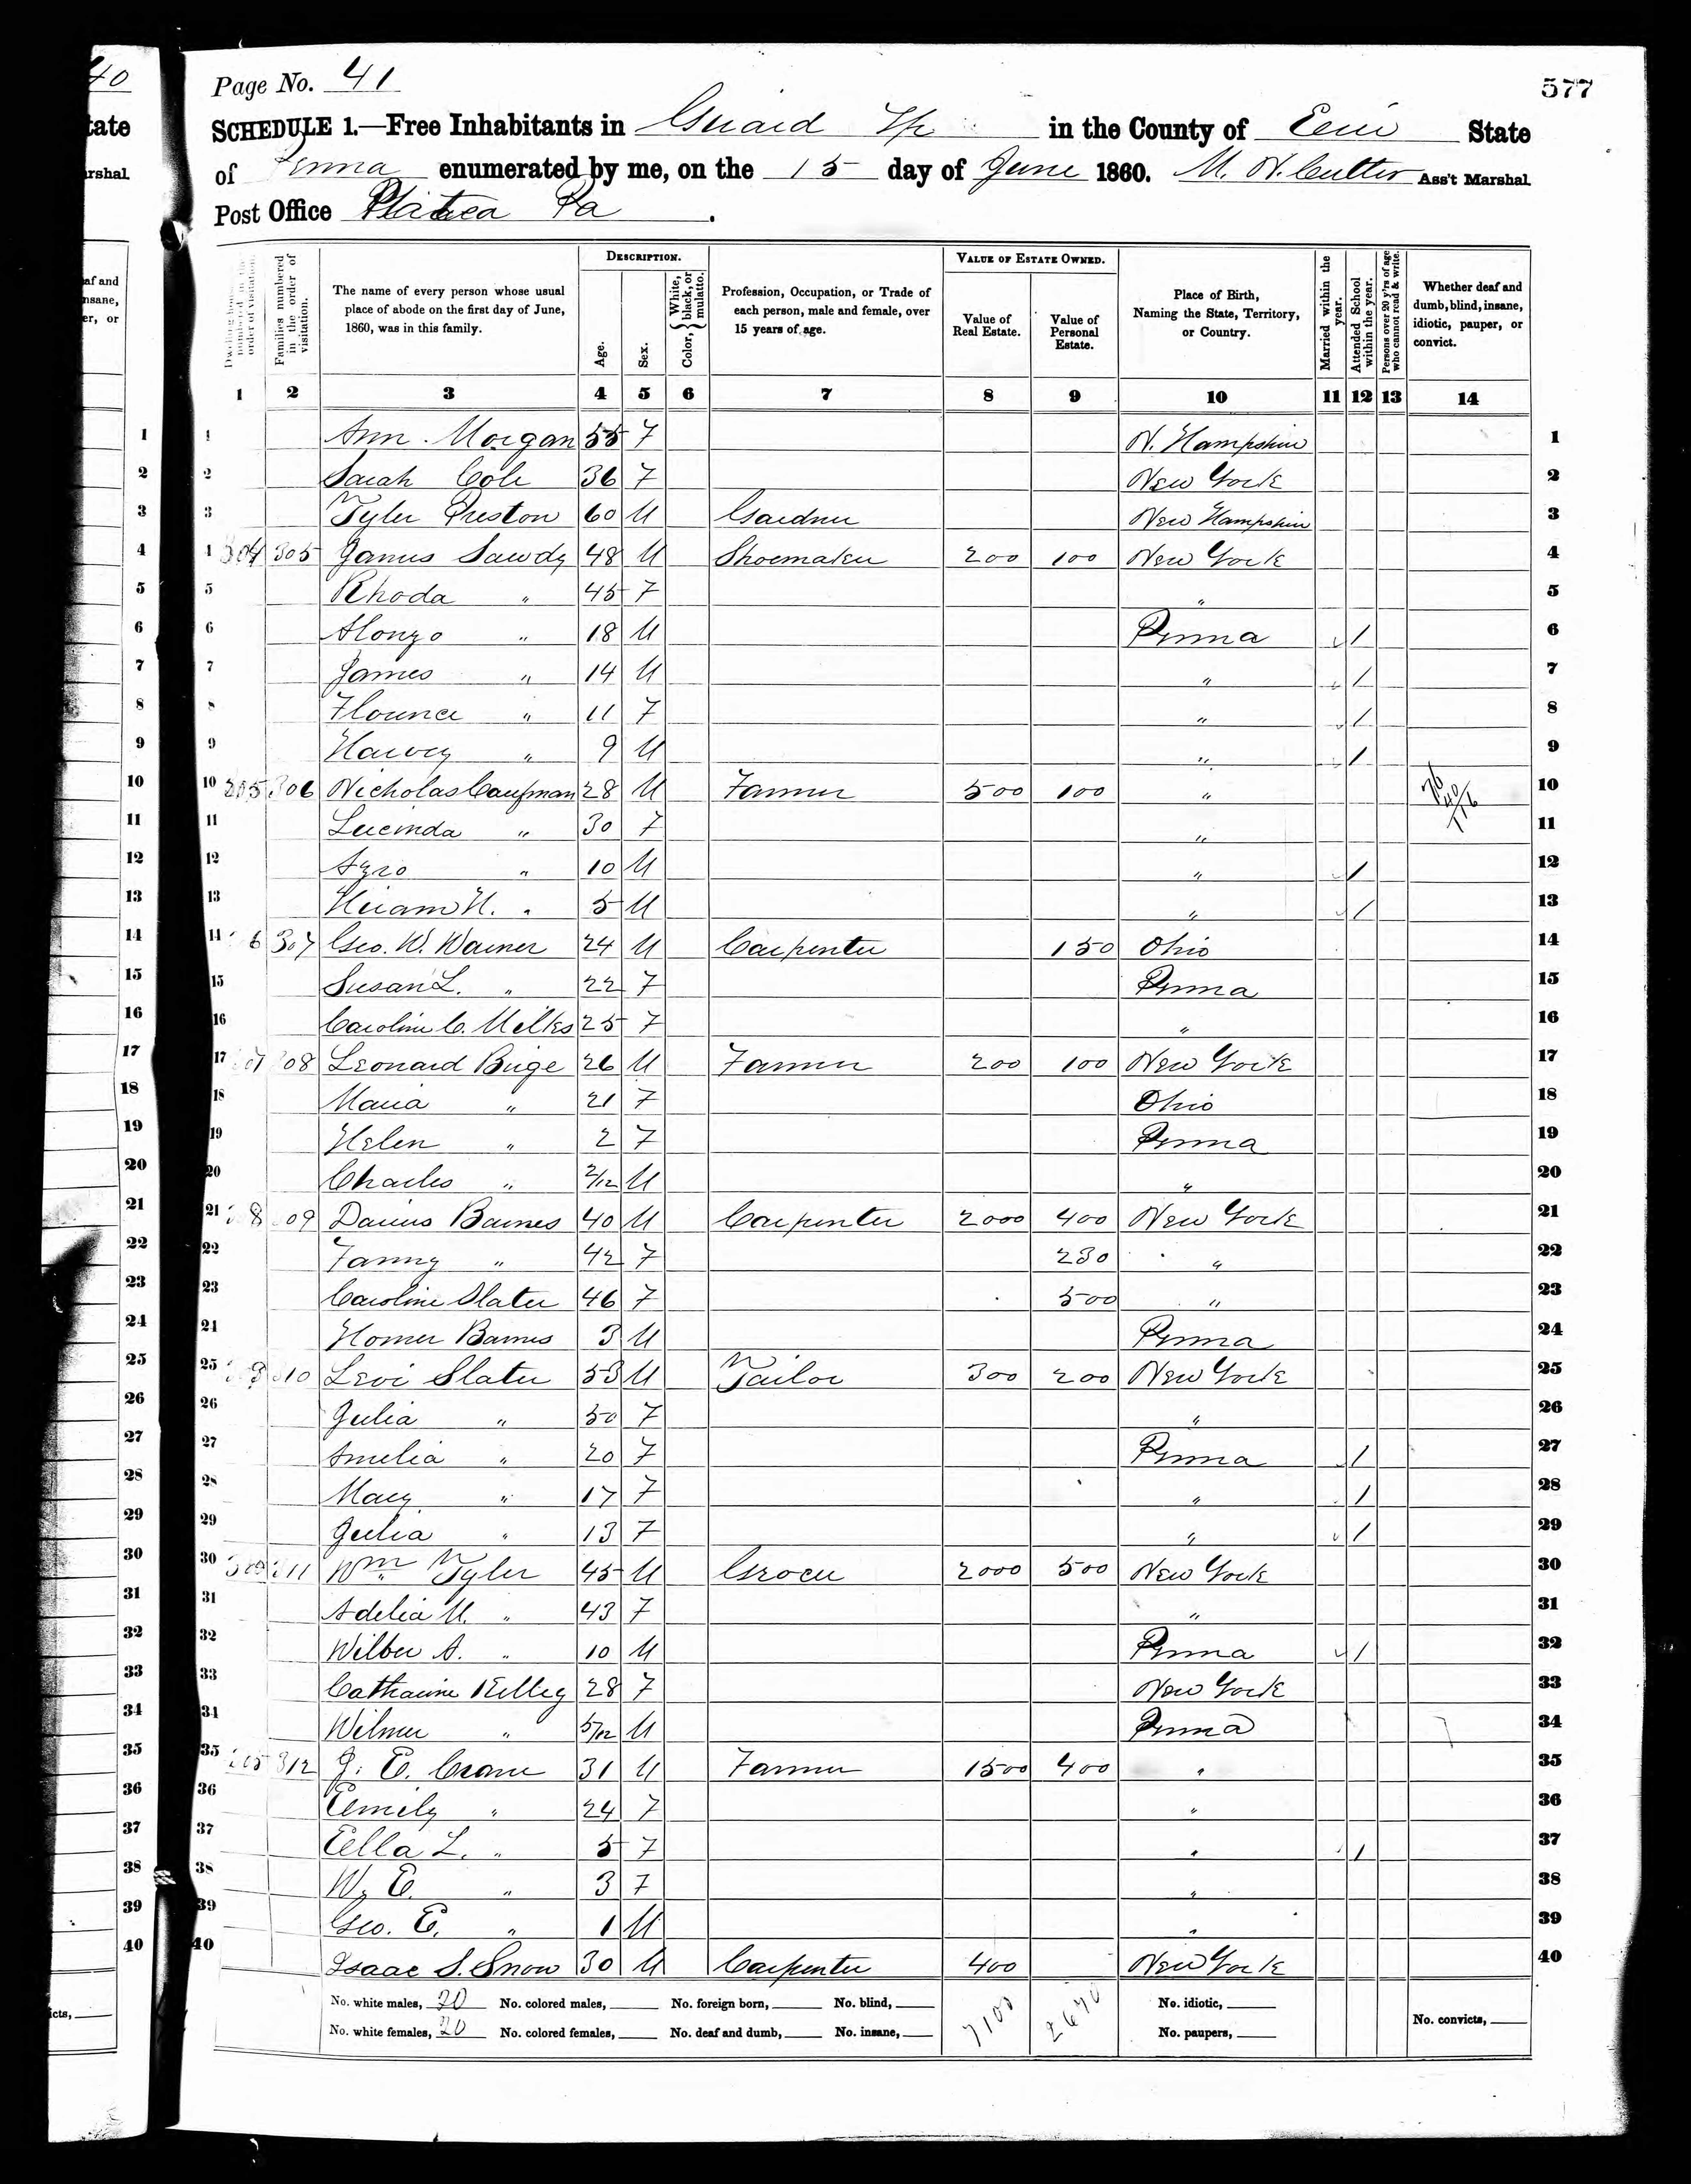 40
tate
rshal.
af and
nsane,
er, or
Page No. 41
577
SCHEDULE 1.—Free Inhabitants in Girard Tp in the County of Erie State
of Penna enumerated by me, on the 15 day of June 1860. M. N. Cutler Ass't Marshal.
Post Office Platea Pa.
DESCRIPTION.
VALUE OF ESTATE OWNED.
Dwelling-houses numbered in the order of visitation.
Families numbered in the order of visitation.
The name of every person whose usual place of abode on the first day of June, 1860, was in this family.
Age.
Sex.
Color, { White, black, or mulatto.
Profession, Occupation, or Trade of each person, male and female, over 15 years of age.
Value of Real Estate.
Value of Personal Estate.
Place of Birth, Naming the State, Territory, or Country.
Married within the year.
Attended School within the year.
Persons over 20 y'rs of age who cannot read & write.
Whether deaf and dumb, blind, insane, idiotic, pauper, or convict.
1 2 3 4 5 6 7 8 9 10 11 12 13 14
1 Ann Morgan 55 F N. Hampshire 1
2 Sarah Cole 36 F New York 2
3 Tyler Preston 60 M Gardner New Hampshire 3
4 304 305 James Sawdy 48 M Shoemaker 200 100 New York 4
5 Rhoda " 45 F " 5
6 Alonzo " 18 M Penna / 6
7 James " 14 M " / 7
8 Florence " 11 F " / 8
9 Harvey " 9 M " / 9
10 305 306 Nicholas Caufman 28 M Farmer 500 100 " 10
11 Lucinda " 30 F " 11
12 Azro " 10 M " / 12
13 Hiram H. " 5 M " / 13
14 6 307 Geo. W. Warner 24 M Carpenter 150 Ohio 14
15 Susan L. " 22 F Penna 15
16 Caroline C. Milks 25 F " 16
17 07 308 Leonard Birge 26 M Farmer 200 100 New York 17
18 Maria " 21 F Ohio 18
19 Helen " 2 F Penna 19
20 Charles " 2/12 M " 20
21 8 09 Darius Barnes 40 M Carpenter 2000 400 New York 21
22 Fanny " 42 F 230 " 22
23 Caroline Slater 46 F 500 " 23
24 Homer Barnes 3 M Penna 24
25 310 Levi Slater 53 M Tailor 300 200 New York 25
26 Julia " 50 F " 26
27 Amelia " 20 F Penna / 27
28 Mary " 17 F " / 28
29 Julia " 13 F " / 29
30 311 Wm Tyler 45 M Grocer 2000 500 New York 30
31 Adelia M. " 43 F " 31
32 Wilber A. " 10 M Penna / 32
33 Catharine Kelley 28 F New York 33
34 Wilmer " 5/12 M Penna 34
35 312 J. E. Crane 31 M Farmer 1500 400 " 35
36 Emily " 24 F " 36
37 Ella L. " 5 F " / 37
38 W. E. " 3 F " 38
39 Geo. E. " 1 M " 39
40 Isaac S. Snow 30 M Carpenter 400 New York 40
No. white males, 20 No. colored males, No. foreign born, No. blind, 7100 2670 No. idiotic,
No. white females, 20 No. colored females, No. deaf and dumb, No. insane, No. paupers, No. convicts,
icts,